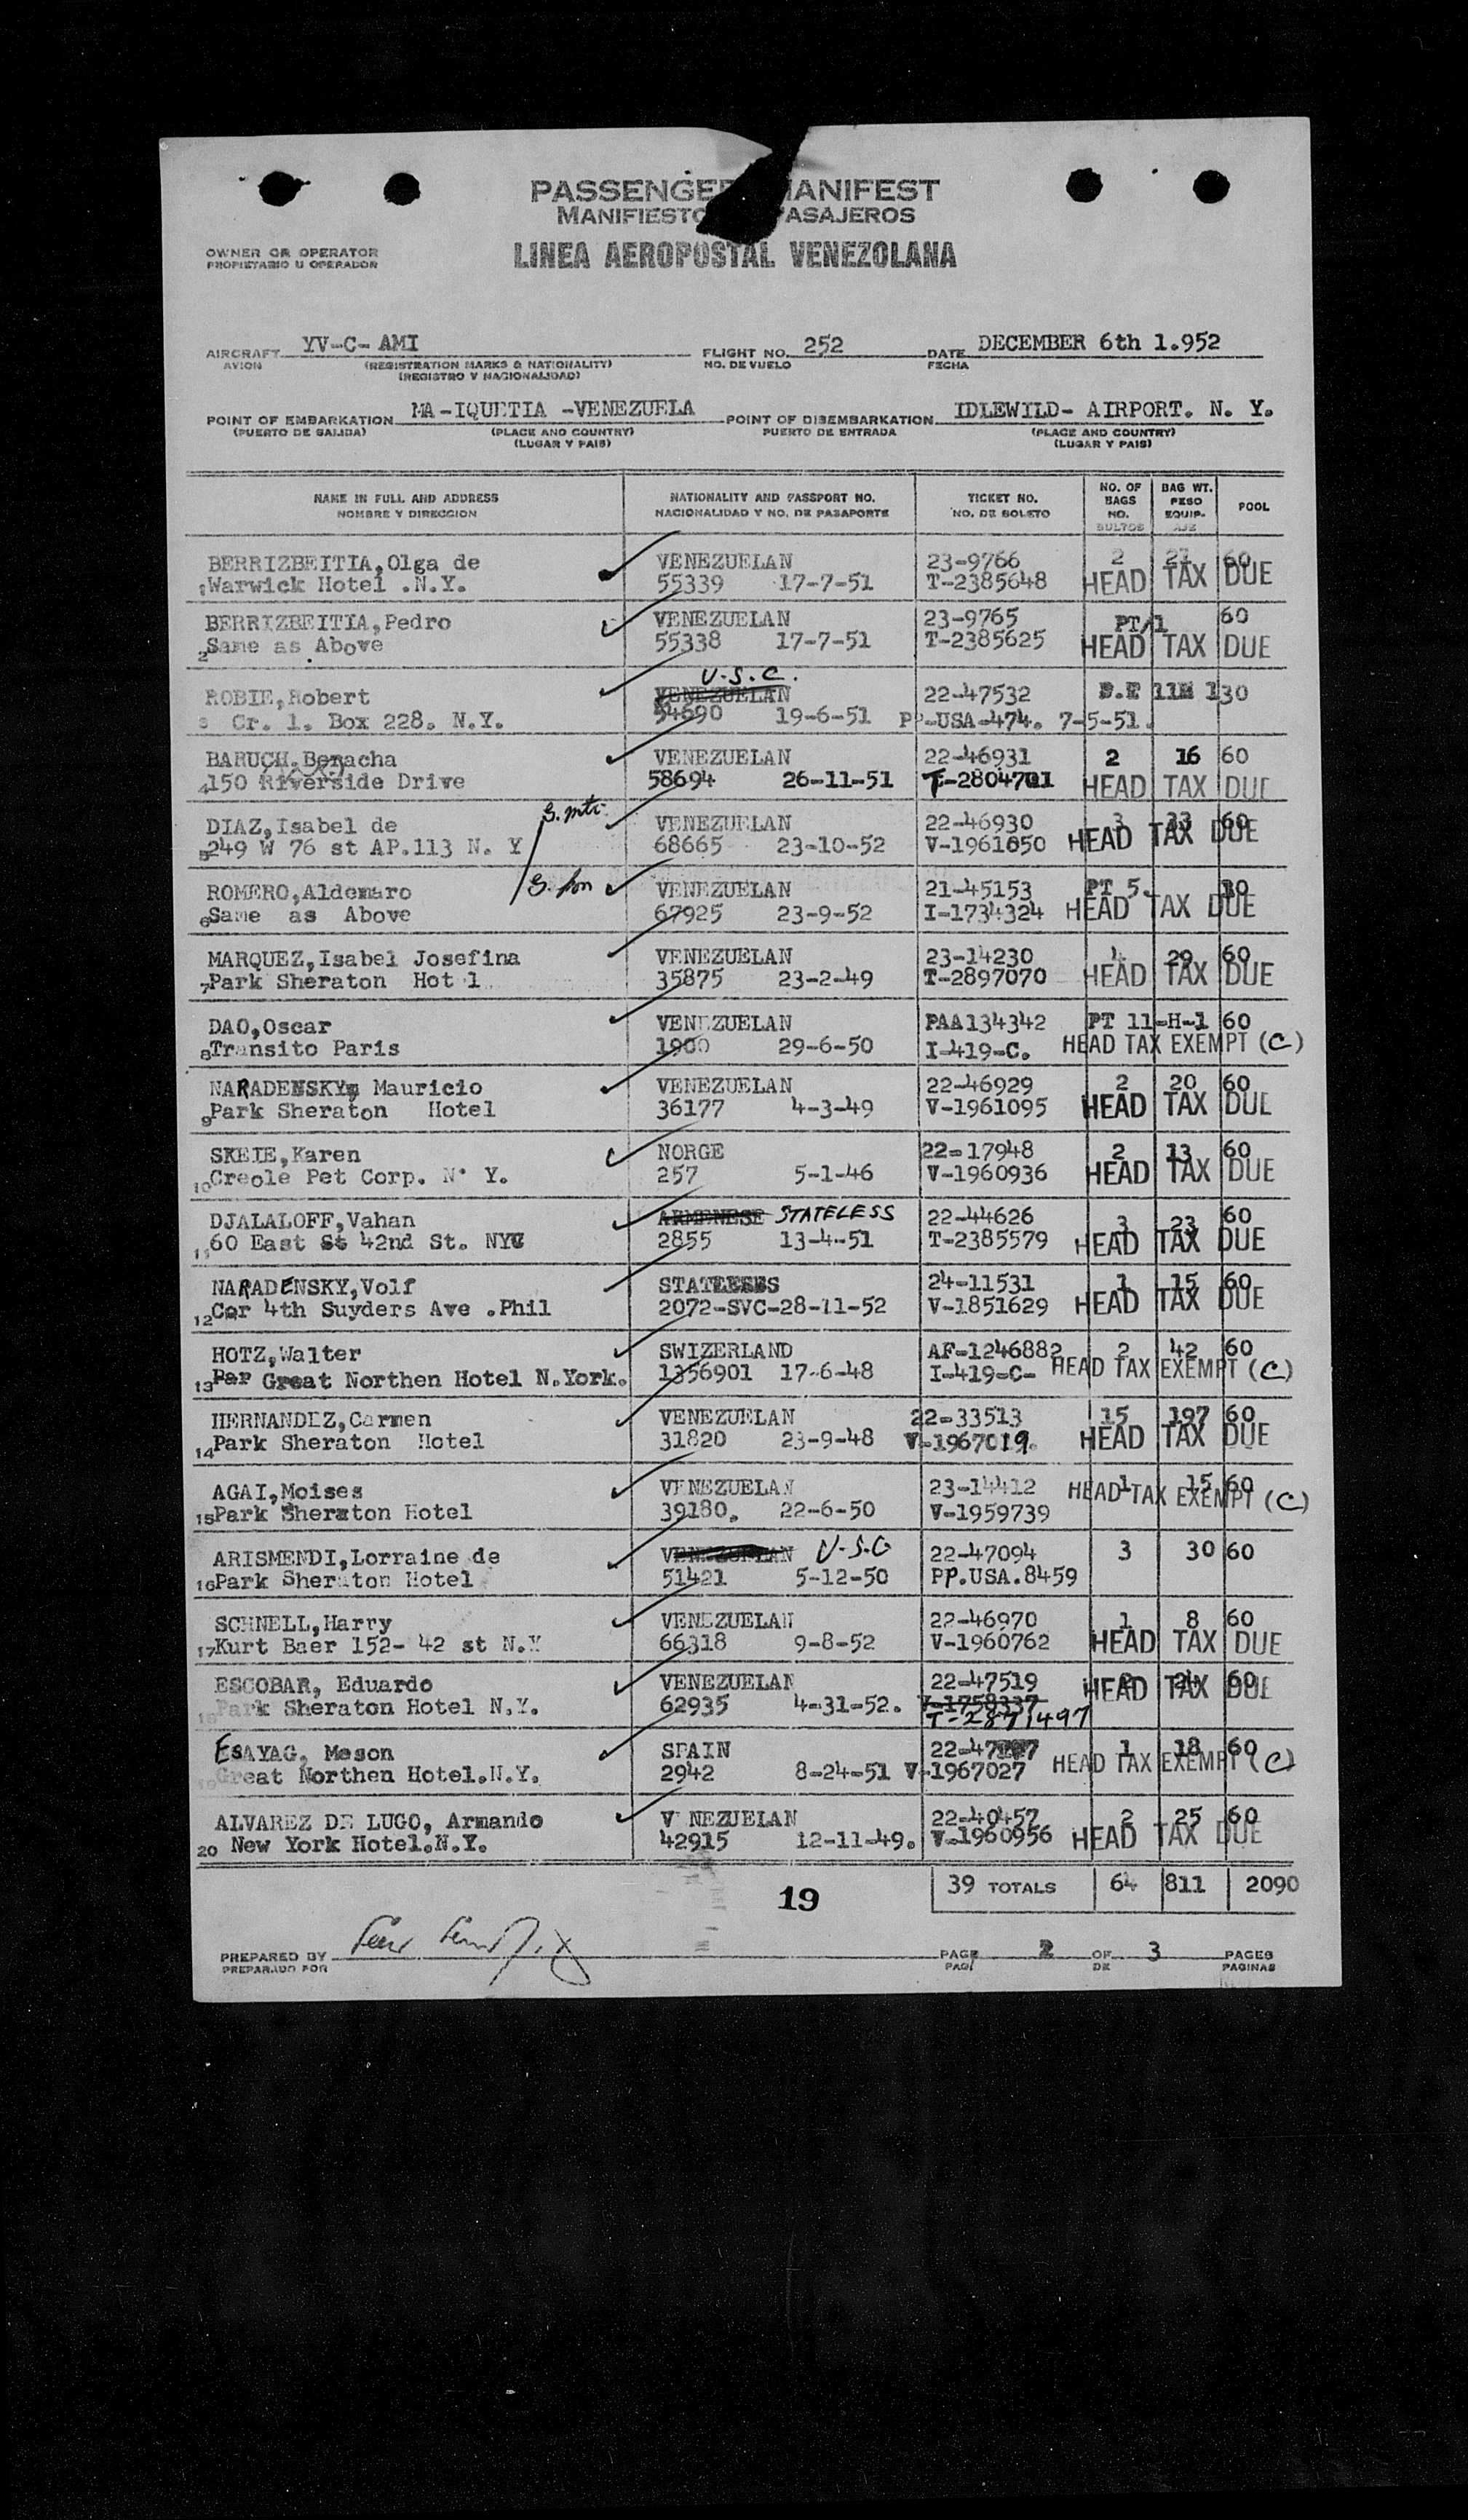 PASSENGER MANIFEST
MANIFIESTO PASAJEROS
OWNER OR OPERATOR
PROPIETARIO U OPERADOR
LINEA AEROPOSTAL VENEZOLANA
AIRCRAFT YV-C- AMI FLIGHT NO. 252 DATE DECEMBER 6th 1.952
AVION (REGISTRATION MARKS & NATIONALITY) NO. DE VUELO FECHA
(REGISTRO Y NACIONALIDAD)
POINT OF EMBARKATION MA-IQUETIA -VENEZUELA POINT OF DISEMBARKATION IDLEWILD- AIRPORT. N. Y.
(PUERTO DE SALIDA) (PLACE AND COUNTRY) PUERTO DE ENTRADA (PLACE AND COUNTRY)
(LUGAR Y PAIS) (LUGAR Y PAIS)
NAME IN FULL AND ADDRESS NATIONALITY AND PASSPORT NO. TICKET NO. NO. OF BAGS BAG WT. POOL
NOMBRE Y DIRECCION NACIONALIDAD Y NO. DE PASAPORTE NO. DE BOLETO NO. BULTOS PESO EQUIP-AJE
BERRIZBEITIA,Olga de VENEZUELAN 23-9766 2 21 60
1 Warwick Hotel .N.Y. 55339 17-7-51 T-2385648 HEAD TAX DUE
BERRIZBEITIA,Pedro VENEZUELAN 23-9765 PT/1 60
2 Same as Above 55338 17-7-51 T-2385625 HEAD TAX DUE
U.S.C.
ROBIE,Robert VENEZUELAN 22-47532 11M 130
3 Cr. 1. Box 228. N.Y. 54690 19-6-51 PP-USA-474. 7-5-51.
BARUCH.Beracha VENEZUELAN 22-46931 2 16 60
4 150 Riverside Drive 58694 26-11-51 T-2804701 HEAD TAX DUE
DIAZ,Isabel de VENEZUELAN 22-46930 3 33 60
5 249 W 76 st AP.113 N. Y 68665 23-10-52 V-1961050 HEAD TAX DUE
ROMERO,Aldemaro VENEZUELAN 21-45153 PT 5. 30
6 Same as Above 67925 23-9-52 I-1734324 HEAD TAX DUE
MARQUEZ,Isabel Josefina VENEZUELAN 23-14230 4 29 60
7 Park Sheraton Hot l 35875 23-2-49 T-2897070 HEAD TAX DUE
DAO,Oscar VENEZUELAN PAA134342 PT 11-H-1 60
8 Transito Paris 1900 29-6-50 I-419-C. HEAD TAX EXEMPT (C)
NARADENSKY, Mauricio VENEZUELAN 22-46929 2 20 60
9 Park Sheraton Hotel 36177 4-3-49 V-1961095 HEAD TAX DUE
SKEIE,Karen NORGE 22-17948 2 13 60
10 Creole Pet Corp. N. Y. 257 5-1-46 V-1960936 HEAD TAX DUE
DJALALOFF,Vahan ARMENESE STATELESS 22-44626 3 23 60
11 60 East St 42nd St. NYC 2855 13-4-51 T-2385579 HEAD TAX DUE
NARADENSKY,Volf STATELESS 24-11531 1 15 60
12 Cor 4th Suyders Ave .Phil 2072-SVC-28-11-52 V-1851629 HEAD TAX DUE
HOTZ,Walter SWIZERLAND AF-1246882 2 42 60
13 Par Great Northen Hotel N.York. 1356901 17-6-48 I-419-C- HEAD TAX EXEMPT (C)
HERNANDEZ,Carmen VENEZUELAN 22-33513 15 197 60
14 Park Sheraton Hotel 31820 23-9-48 V-1967019. HEAD TAX DUE
AGAI,Moises VENEZUELAN 23-14412 1 15 60
15 Park Sheraton Hotel 39180. 22-6-50 V-1959739 HEAD TAX EXEMPT (C)
ARISMENDI,Lorraine de VENEZUELAN U-S-C 22-47094 3 30 60
16 Park Sheraton Hotel 51421 5-12-50 PP.USA.8459
SCHNELL,Harry VENEZUELAN 22-46970 1 8 60
17 Kurt Baer 152- 42 st N.Y 66318 9-8-52 V-1960762 HEAD TAX DUE
ESCOBAR, Eduardo VENEZUELAN 22-47519 2 24 60
18 Park Sheraton Hotel N.Y. 62935 4-31-52. V-1758337 HEAD TAX DUE
T-2871497
ESAYAG, Meson SPAIN 1 18 60
19 Great Northen Hotel.N.Y. 2942 8-24-51 V-1967027 HEAD TAX EXEMPT (C)
ALVAREZ DE LUGO, Armando V NEZUELAN 22-40457 2 25 60
20 New York Hotel.N.Y. 42915 12-11-49. V-1960956 HEAD TAX DUE
19 39 TOTALS 64 811 2090
PREPARED BY PAGE 2 OF 3 PAGES
PREPARADO POR PAGI DE PAGINAS